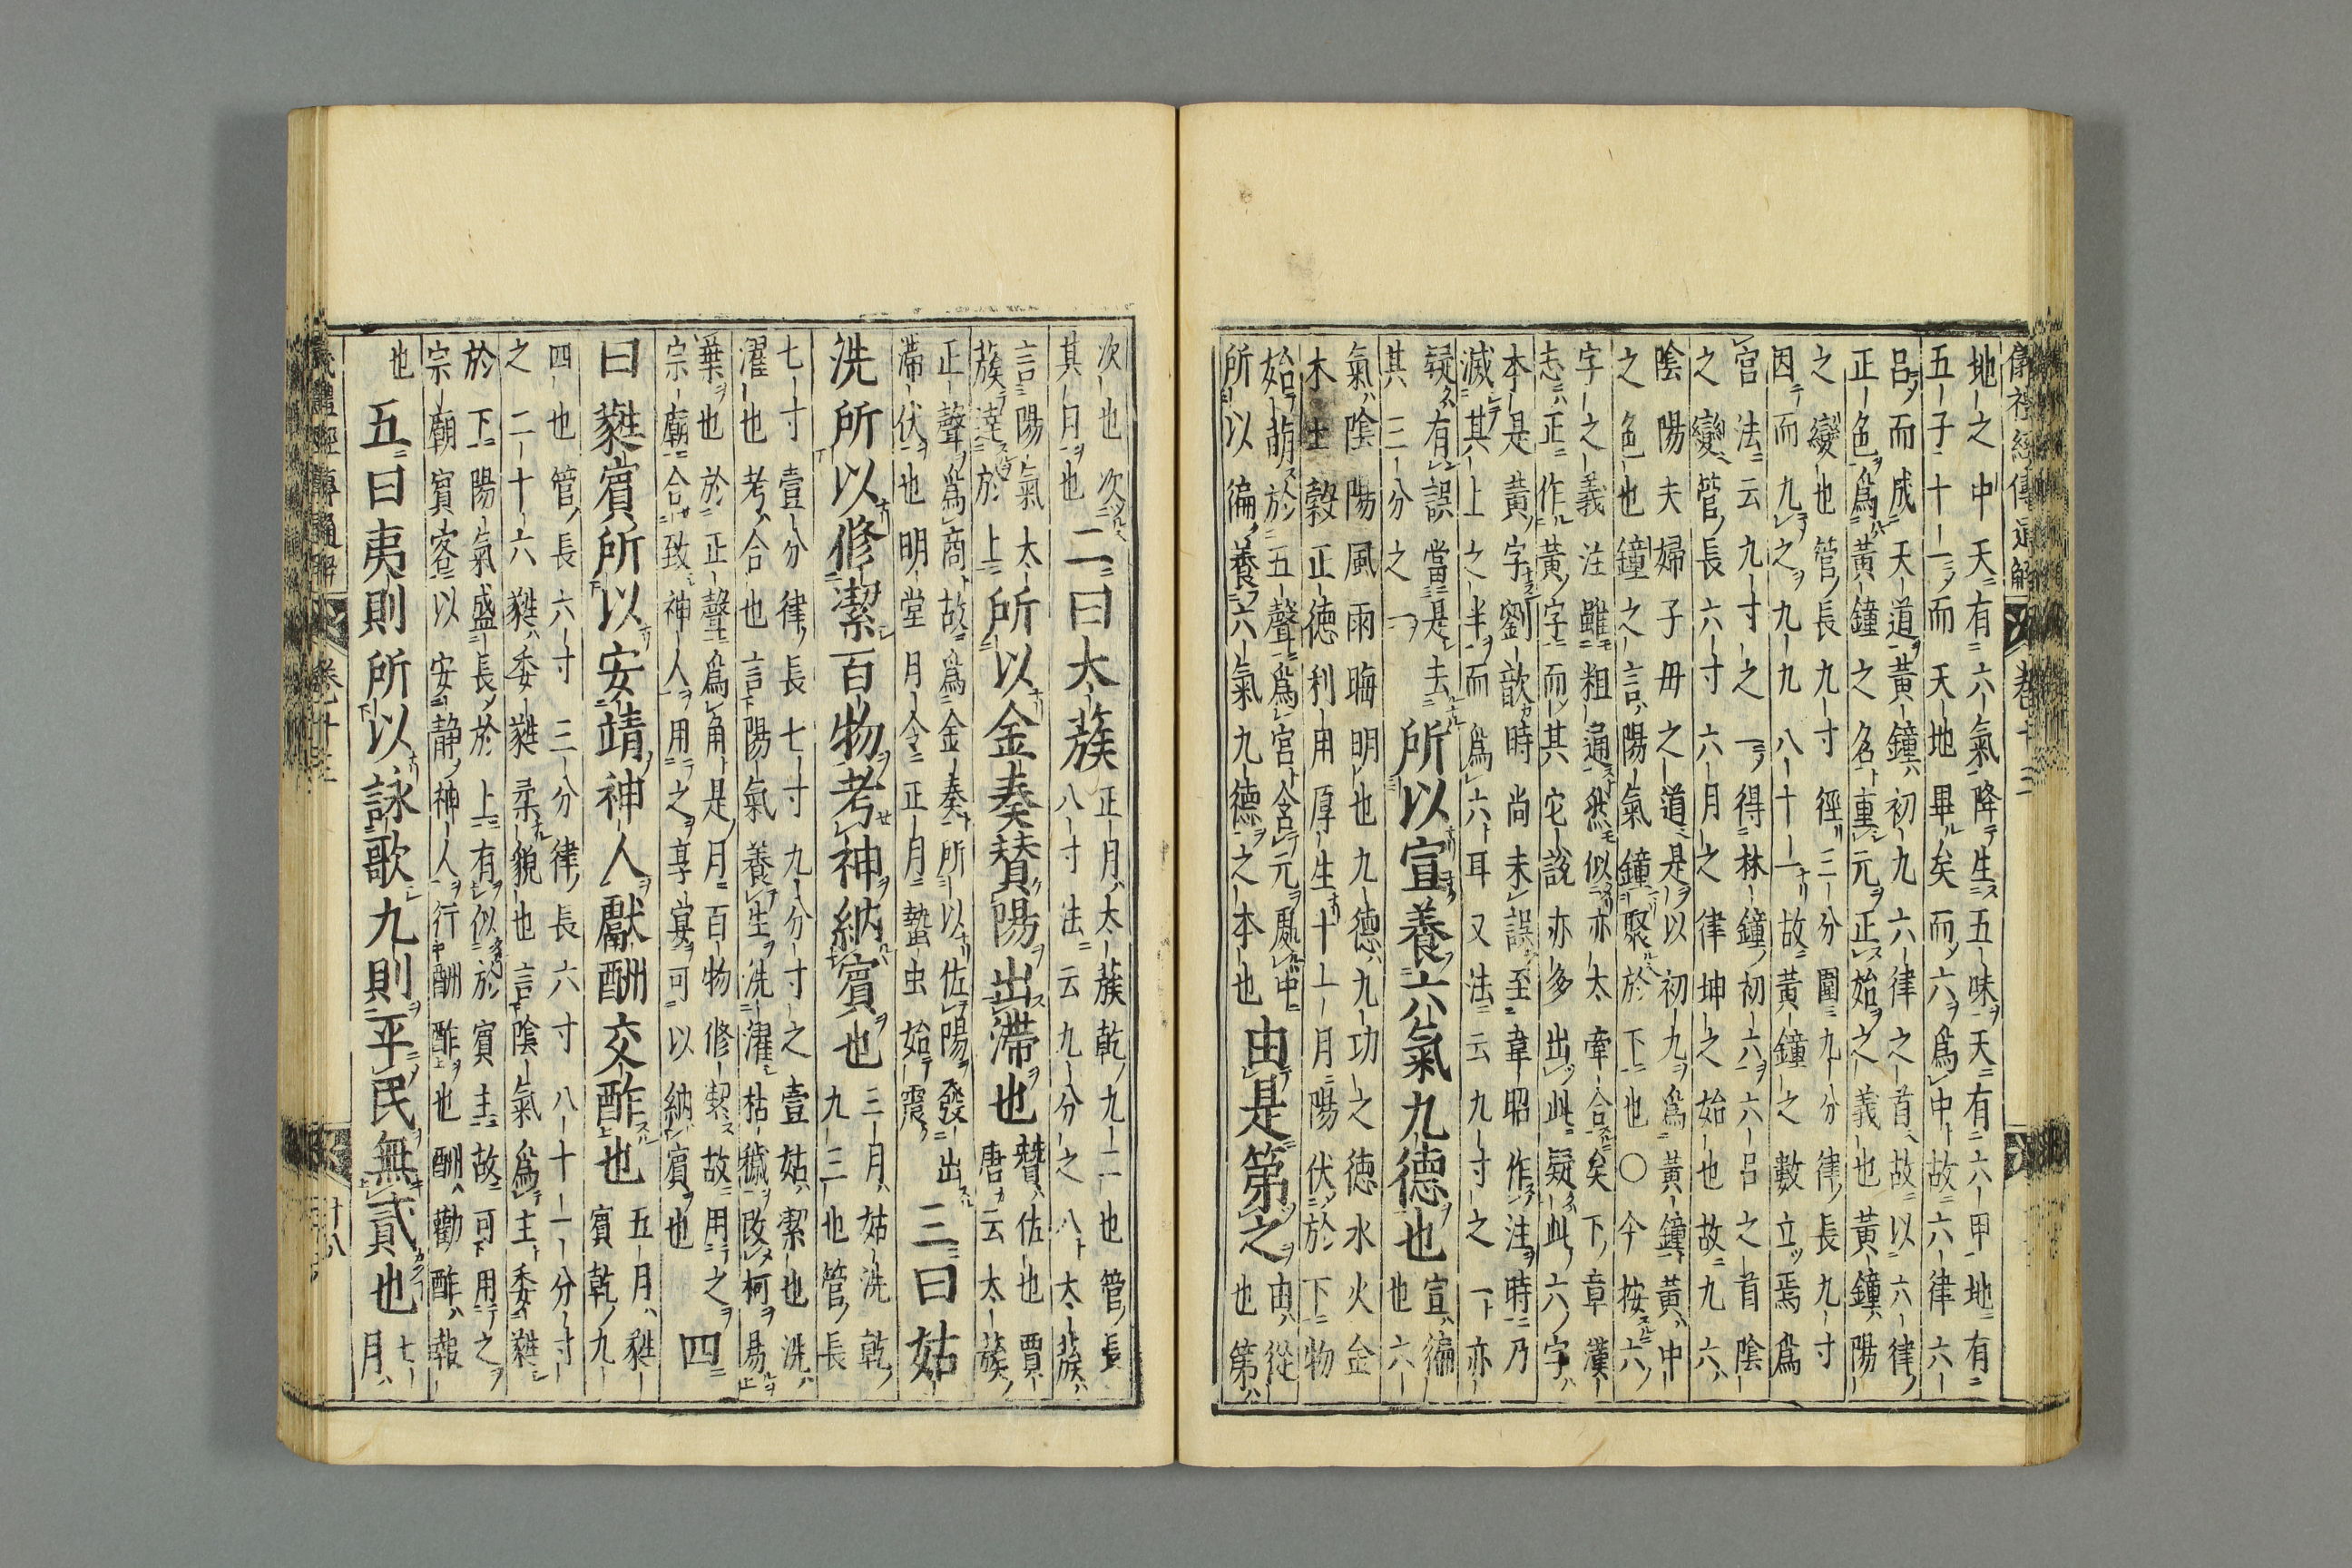 儀禮經傳通解 卷十三
地之中天有六氣降生五味天有六甲地有
五子十一而天地畢矣而六爲中故六律六
呂而成天道黃鐘初九六律之首故以六律
正色爲黃鐘之名重元正始之義也黃鐘陽
之變也管長九寸徑三分圍九分律長九寸
因而九之九九八十一故黃鐘之數立焉爲
宮法云九寸之一得林鐘初六六呂之首陰
之變管長六寸六月之律坤之始也故九六
陰陽夫婦子毋之道是以初九爲黃鐘黃中
之色也鐘之言陽氣鐘聚於下也○今按六
字之義注雖粗通然似亦太牽合矣下章漢
志正作黃字而其它説亦多出此疑此六字
本是黃字劉歆時尚未誤至韋昭作注時乃
滅其上之半而爲六耳又法云九寸之一亦
疑有誤當是去
其三分之一
所以宣養六氣九德也
宣徧
也六
氣陰陽風雨晦明也九德九功之德水火金
木土穀正德利用厚生十一月陽伏於下物
始萌於五聲爲宮含元處中
所以徧養六氣九德之本也
由是第之
由從
也第
次也次
其月也
二曰太蔟
正月太蔟乾九二也管長
八寸法云九分之八太蔟
言陽氣太
蔟達於上
所以金奏賛陽出滯也
賛佐也賈
唐云太蔟
正聲爲商故爲金奏所以佐陽發出
滯伏也明堂月令正月蟄虫始震
三曰姑
洗所以修潔百物考神納賓也
三月姑洗乾
九三也管長
七寸壹分律長七寸九分寸之壹姑潔也洗
濯也考合也言陽氣養生洗濯枯穢改柯易
葉也於正聲爲角是月百物修潔故用之
宗廟合致神人用之享宴可以納賓也
四
曰蕤賓所以安靖神人獻酬交酢也
五月蕤
賓乾九
四也管長六寸三分律長六寸八十一分寸
之二十六蕤委蕤柔貌也言陰氣爲主委蕤
於下陽氣盛長於上有似於賓主故可用之
宗廟賓客以安静神人行酬酢也酬勸酢報
也
五曰夷則所以詠歌九則平民無貳也
七
月
儀禮經傳通解 卷十三 十八